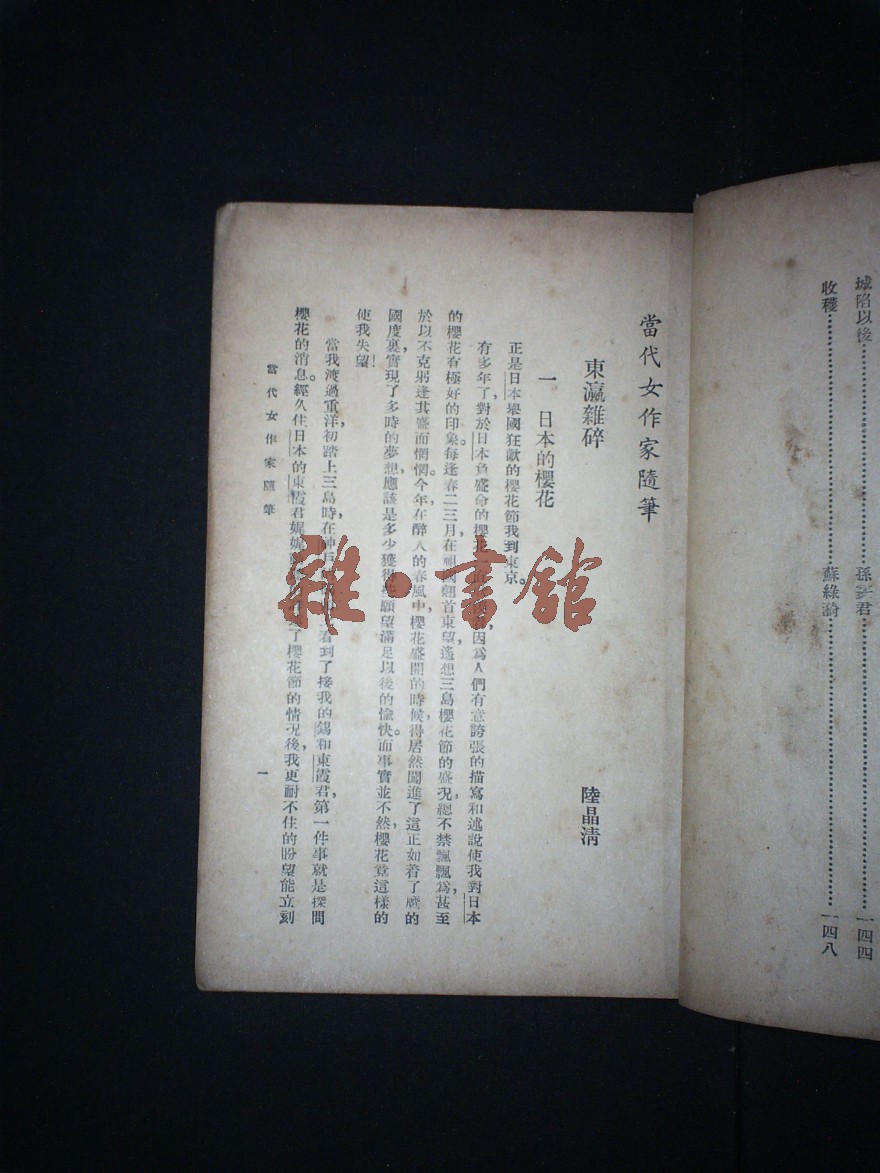 城陷以後……孫……君……一四四
收穫……蘇綠漪……一四八
當代女作家隨筆
東瀛雜碎
陸晶清
一　日本的櫻花
正是日本舉國狂歡的櫻花節我到東京。
有多年了,對於日本負盛命的櫻花因爲人們有意誇張的描寫和述說使我對日本
的櫻花有極好的印象。每逢春二三月在祖國翹首東望,遙想三島櫻花節的盛況,總不禁飄飄爲,甚至
於以不克躬逢其盛而惘惘。今年在醉人的春風中,櫻花盛開的時候,得居然闖進了這正如着了魔的
國度裏,實現了多時的夢想,應該是多少獲得些願望滿足以後的愉快。而事實並不然,櫻花竟這樣的
使我失望!
當我渡過重洋,初踏上三島時,在神戶看到了接我的錫和東霞君,第一件事就是探問
櫻花的消息。經久住日本的東霞君娓娓了櫻花節的情況後,我更耐不住的盼望能立刻
當代女作家隨筆
一
雜·書館